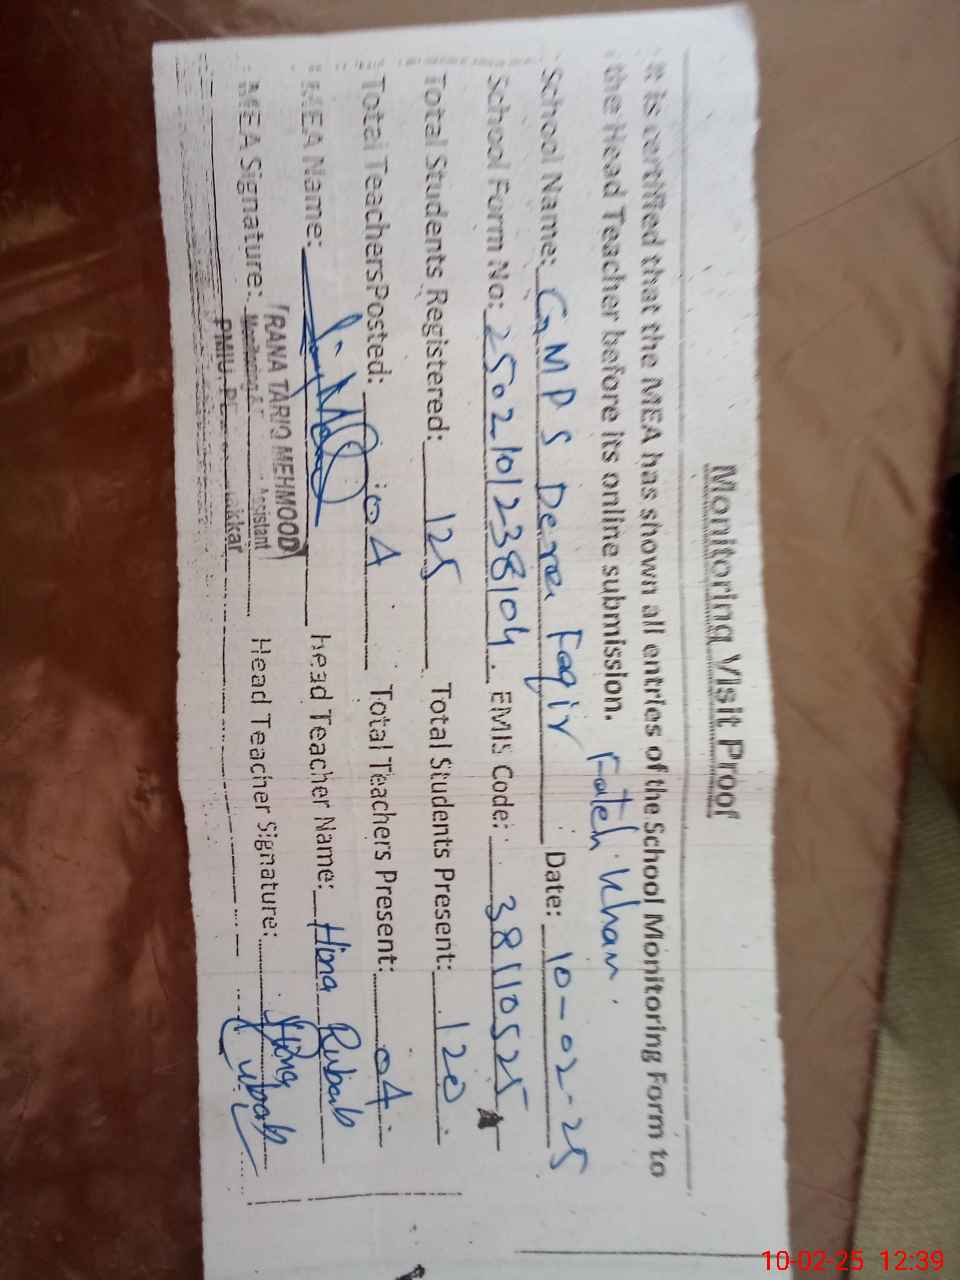 Monitoring Visit Proof
It is certified that the MEA has shown all entries of the School Monitoring Form to
the Head Teacher before its online submission.
Fateh Khan.
School Name: GMPS Dera Faqir Date: 10-02-25
School Form No: 2502101238104. EMIS Code: 38110525
Total Students Registered: 125 Total Students Present: 120
Total Teachers Posted: 04 Total Teachers Present: 04
MEA Name: Head Teacher Name: Hina Rubab
MEA Signature: Head Teacher Signature: Hina Rubab
RANA TARIQ MEHMOOD
Monitoring & Assistant
PMIU. kkar
10-02-25 12:39